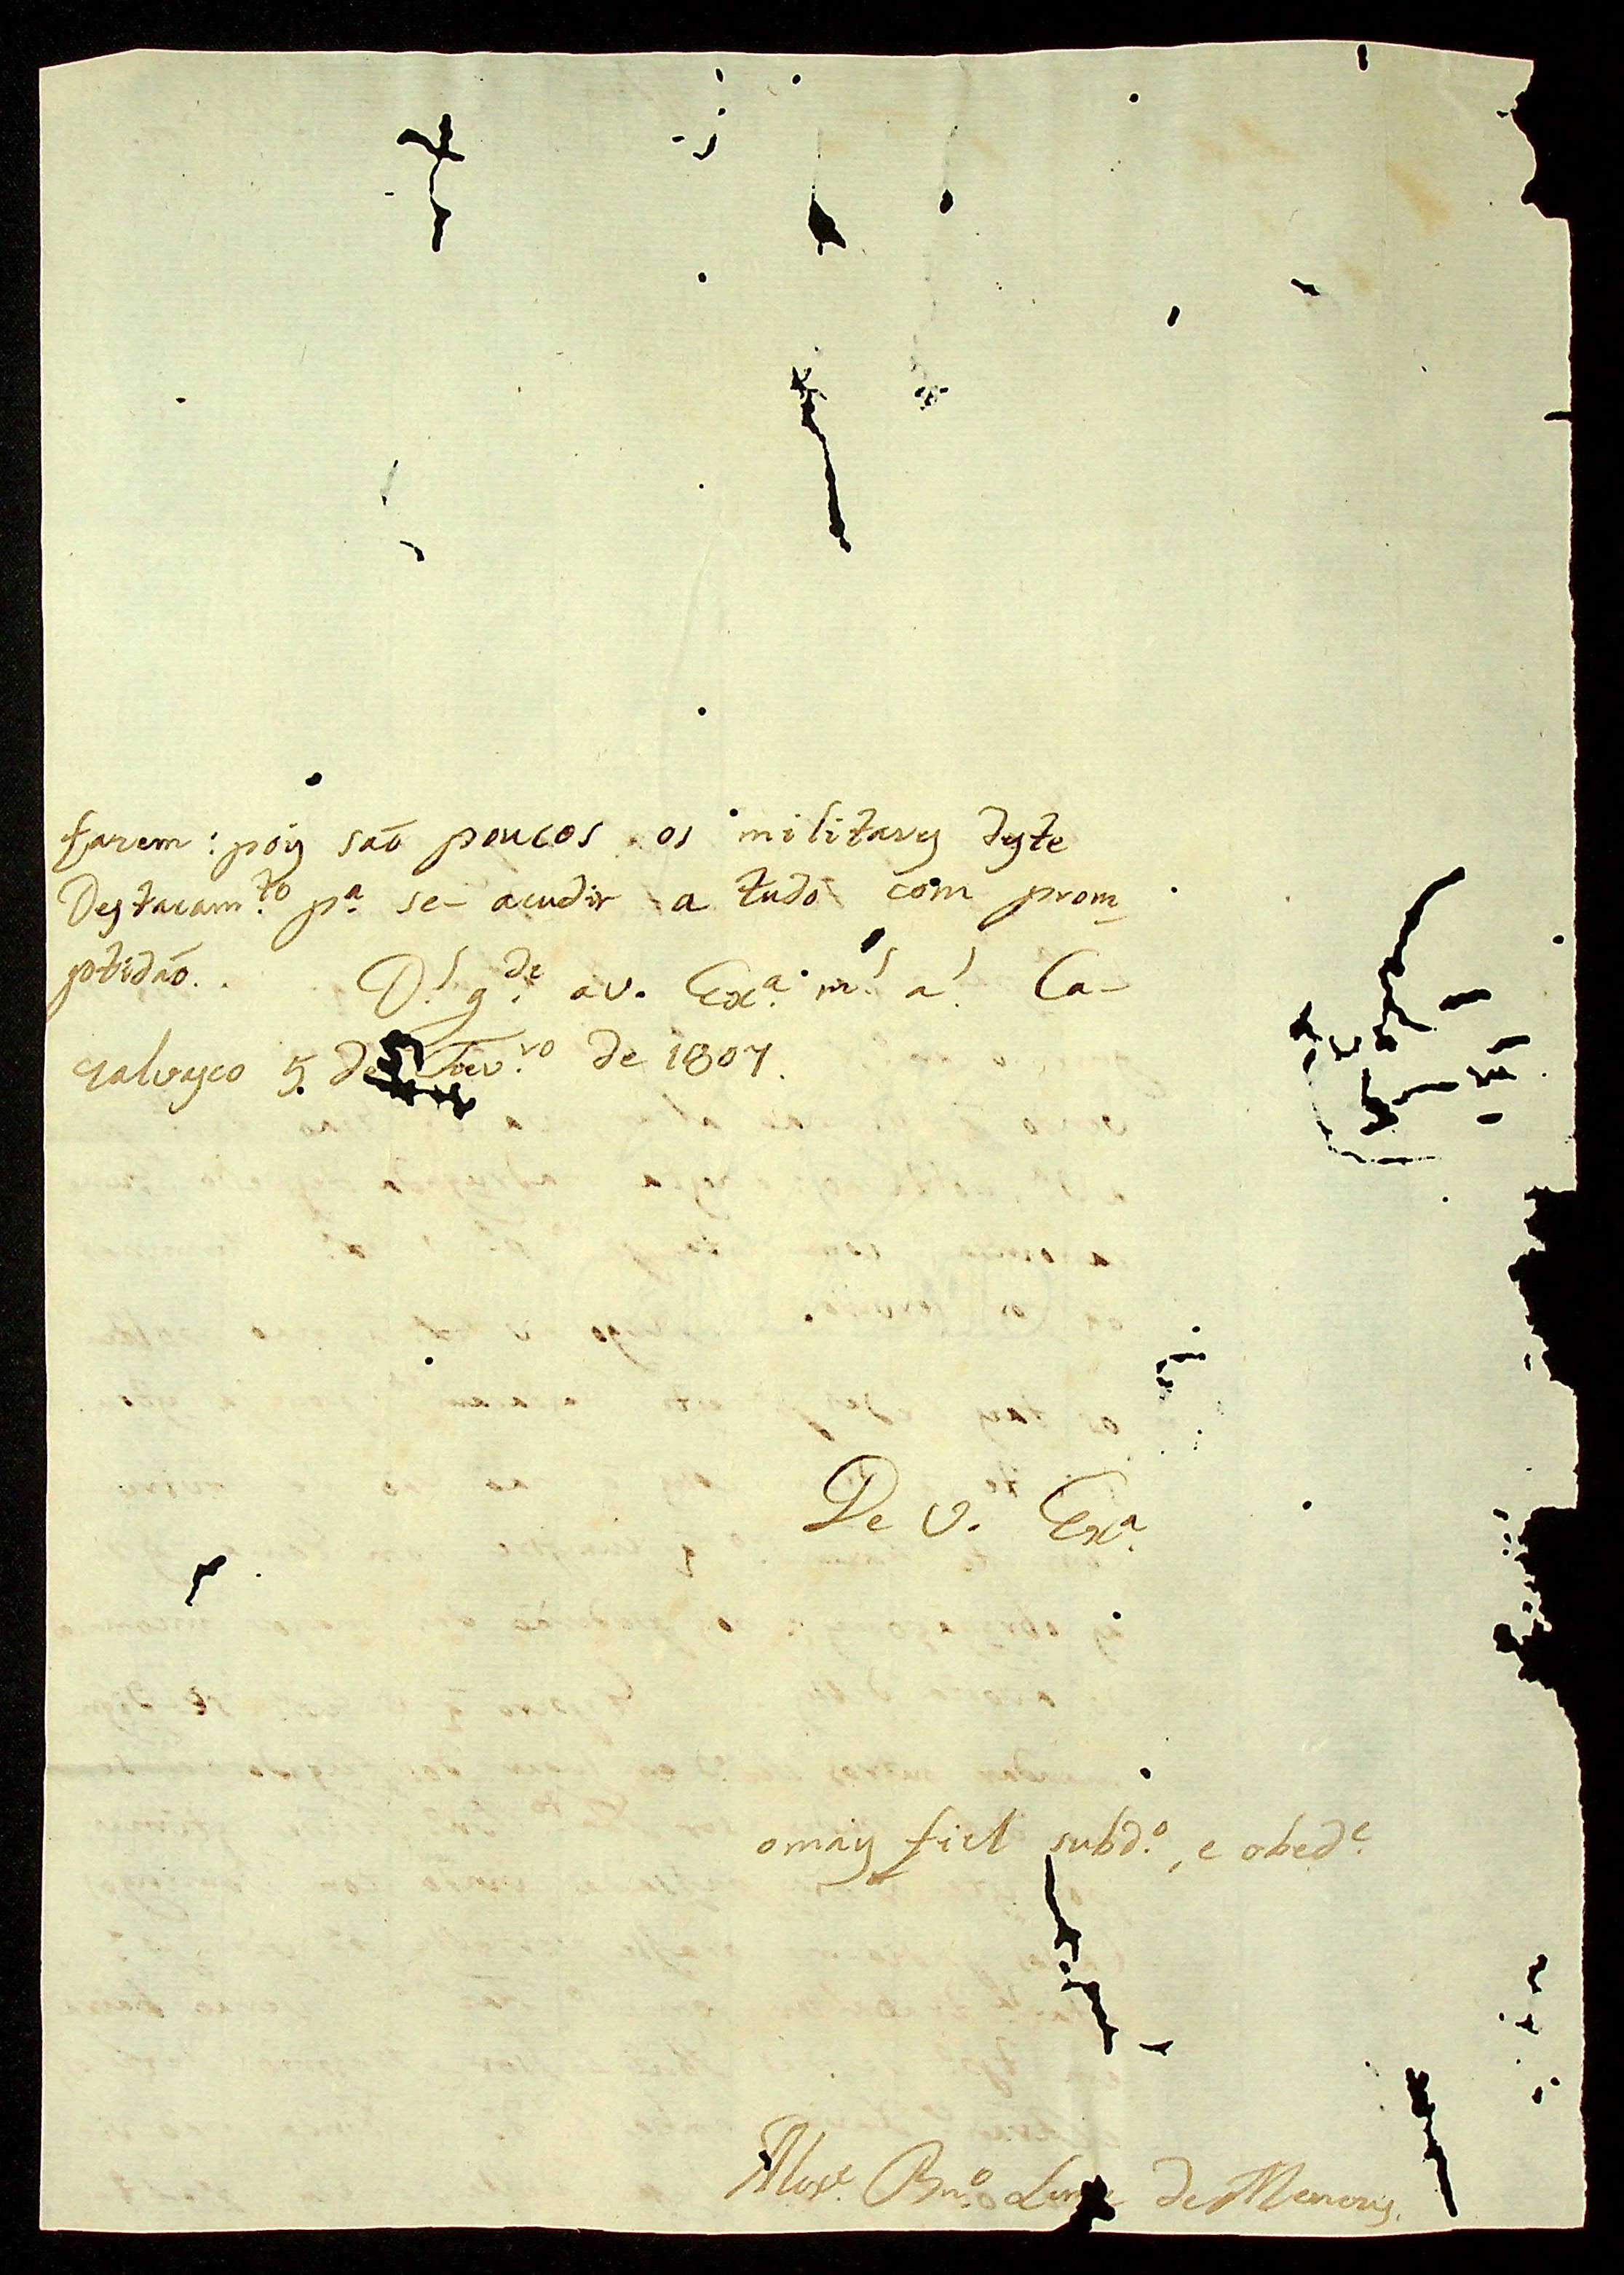 farem: pois saõ poucos os militares deste
Destacam.to p.a se- acudir a tudo com prom_
ptidaõ.. D.s g.de a v. Ex.a m.s a.s Ca-
salvasco 5. de Fev.ro de 1807.
De V. Ex.a
o mais fiel subd.o, e obed.e
Alex.e Bn.o de Menezes.